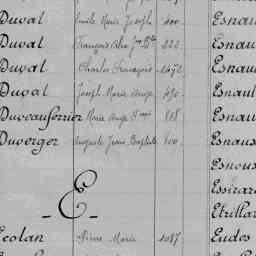 Duval Emile Marie Joseph 400 Esnau
Duval François 222 Esnau
Duval Charles François 1472 Esnau
Duval Joseph Marie Ange 490 Esnaul
Duveauferrier Marie Ange 868 Esnaul
Duverger Auguste Jean Baptiste 100 Esnaux
Esnoux
Essirard
- E - Etrillar
Ecolan Pierre Marie 1087 Eudes